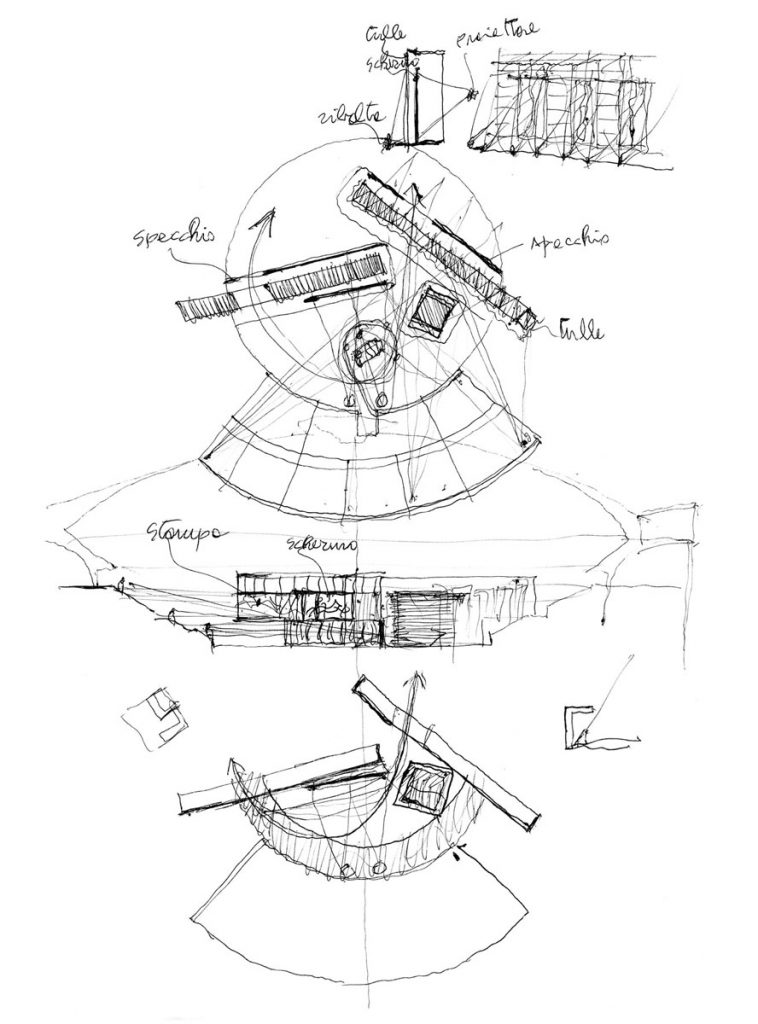 tulle
schermo
proiettore
ribalta
specchio
specchio
tulle
stampa
schermo